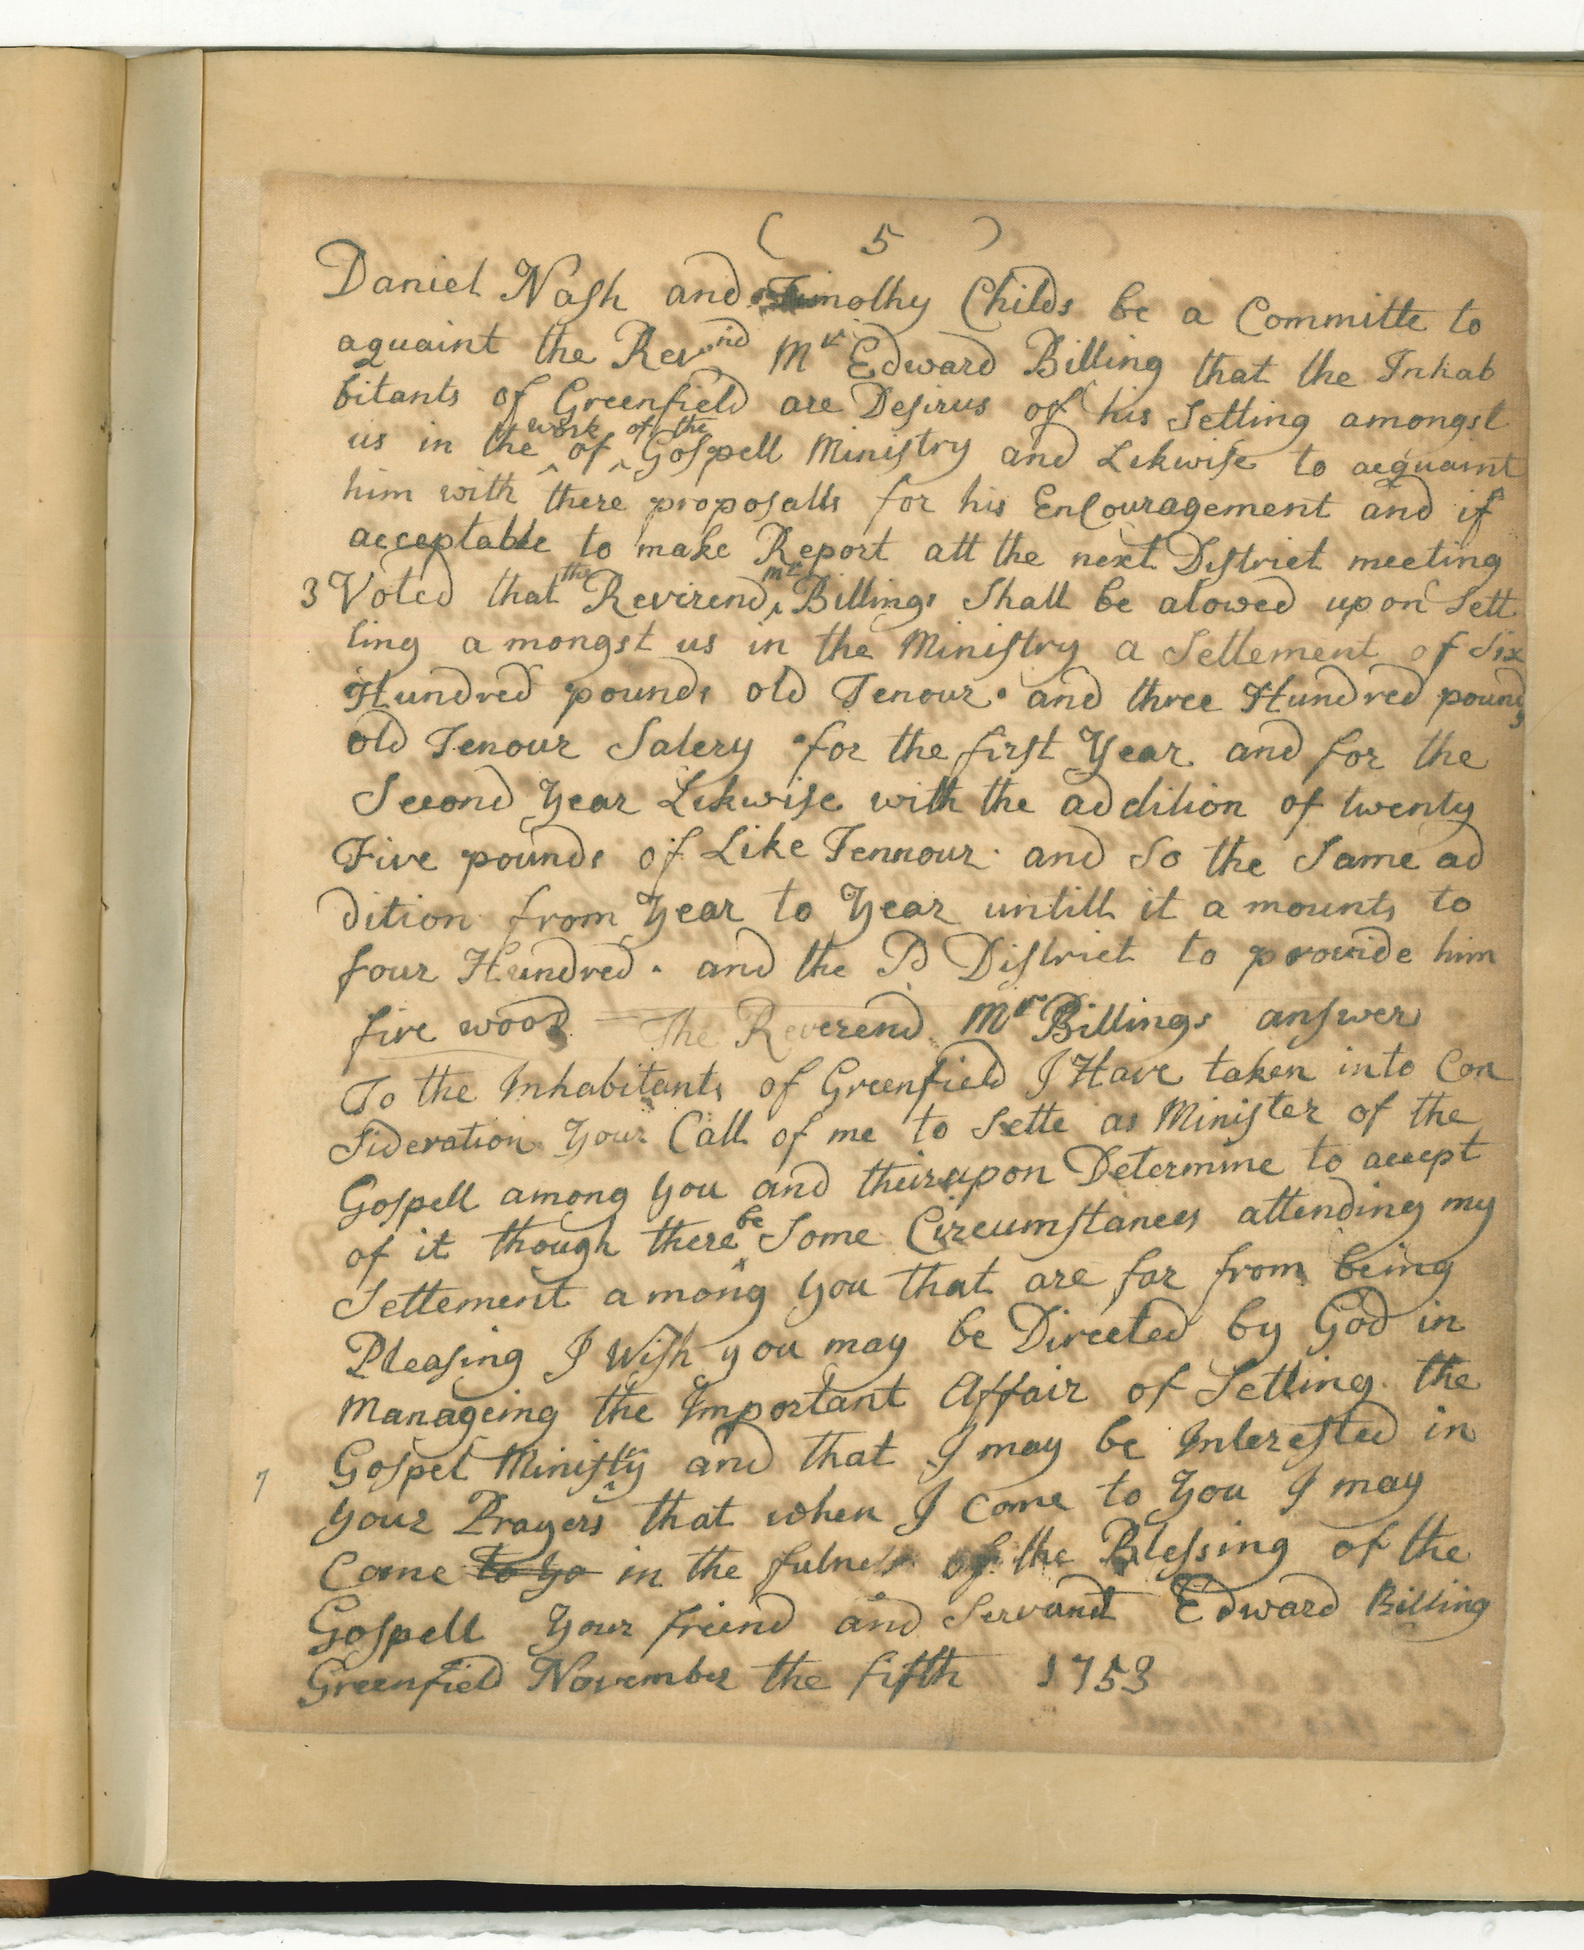 ( 5 )
Daniel Nash and Timothy Childs be a Committe to
aquaint the Rev.nd Mr Edward Billing that the Inhab
bitants of Greenfield are Desirus of his Setling amongst
us in the work of of the Gospell Ministry and Likwise to acquaint
him with there proposalls for his EnCouragement and if
acceptable to make Report att the next District meeting
3 Voted that the Revirend mr Billings Shall be alowed upon Sett
ling a mongst us in the Ministry a Settement of Six
Hundred pounds old Tenour. and three Hundred pounds
old Tenour Salery for the first Year and for the
Second Year Likwise with the addition of twenty
Five pounds of Like Tennour. and So the Same ad
dition from Year to Year untill it a mounts to
four Hundred. and the District to provide him
fire wood The Reverend Mr Billings answer
To the Inhabitants of Greenfield I Have taken into Con
Sideration Your Call of me to Sette as Minister of the
Gospell among you and theirupon Determine to accept
of it though there be Some Circumstances attending my
Settement among you that are far from being
Pleasing I Wish you may be Directed by God in
Manageing the Important Affair of Setling the
Gospel Ministry and that I may be Interested in
your Prayers that when I Come to You I may
Come to yo in the fulness of the Blessing of the
Gospell Your friend and Servant Edward Billing
Greenfield November the fifth 1753